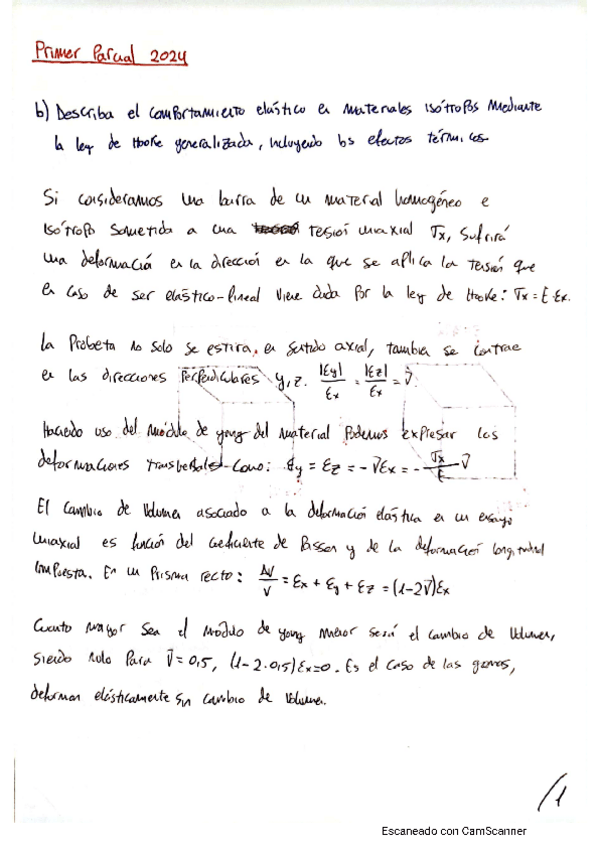 Primer Parcial 2024
b) Describa el comportamiento elástico en materiales isótropos mediante
la ley de Hooke generalizada, incluyendo los efectos térmicos.
Si consideramos una barra de un material homogéneo e
isótropo sometida a una tensión uniaxial σx, sufrirá
una deformación en la dirección en la que se aplica la tensión que
en caso de ser elástico-lineal viene dada por la ley de Hooke: σx = E·εx.
La Probeta no solo se estira en sentido axial, también se contrae
en las direcciones Perpendiculares y, z. |εy|/εx = |εz|/εx = ν
Haciendo uso del módulo de yong del material Podemos expresar las
deformaciones transversales como: εy = εz = -νεx = - σx/E ν
El Cambio de Volumen asociado a la deformación elástica en un ensayo
uniaxial es función del coeficiente de Poisson y de la deformación longitudinal
impuesta. En un Prisma recto: ΔV/V = εx + εy + εz = (1-2ν)εx
Cuanto mayor sea el modulo de yong menor será el cambio de Volumen,
siendo nulo Para ν = 0,5, (1-2·0,5)εx=0. Es el caso de las gomas,
deforman elásticamente sin cambio de Volumen.
/1
Escaneado con CamScanner